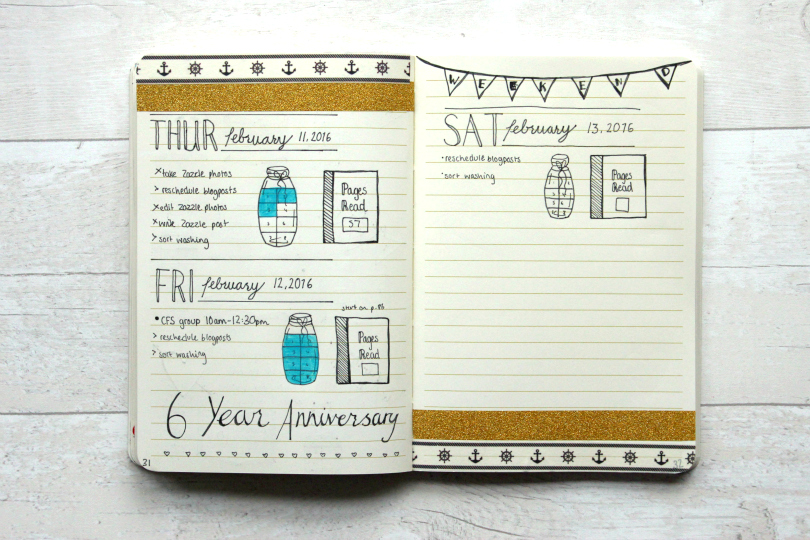 THUR february 11, 2016
x take Zazzle photos
> reschedule blogposts
x edit Zazzle photos
x write Zazzle post
> sort washing
Pages
Read
57
FRI february 12, 2016
• CFS group 10am-12:30pm
> reschedule blogposts
> sort washing
start on p.
Pages
Read
6 Year Anniversary
31
WEEKEND
SAT february 13, 2016
· reschedule blogposts
· sort washing
Pages
Read
32